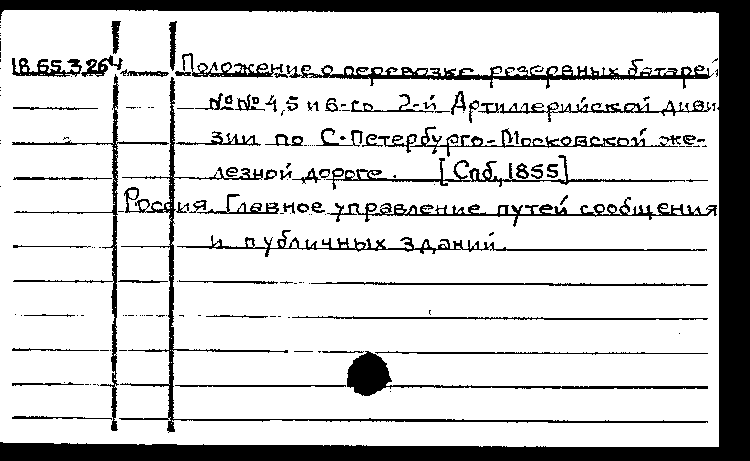 18.65.3.264. Положение о перевозке резервных батарей
№№ 4,5 и 6-го 2-й Артиллерийской диви-
зии по С-Петербурго-Московской же-
лезной дороге. [Спб., 1855]
Россия. Главное управление путей сообщения
и публичных зданий.